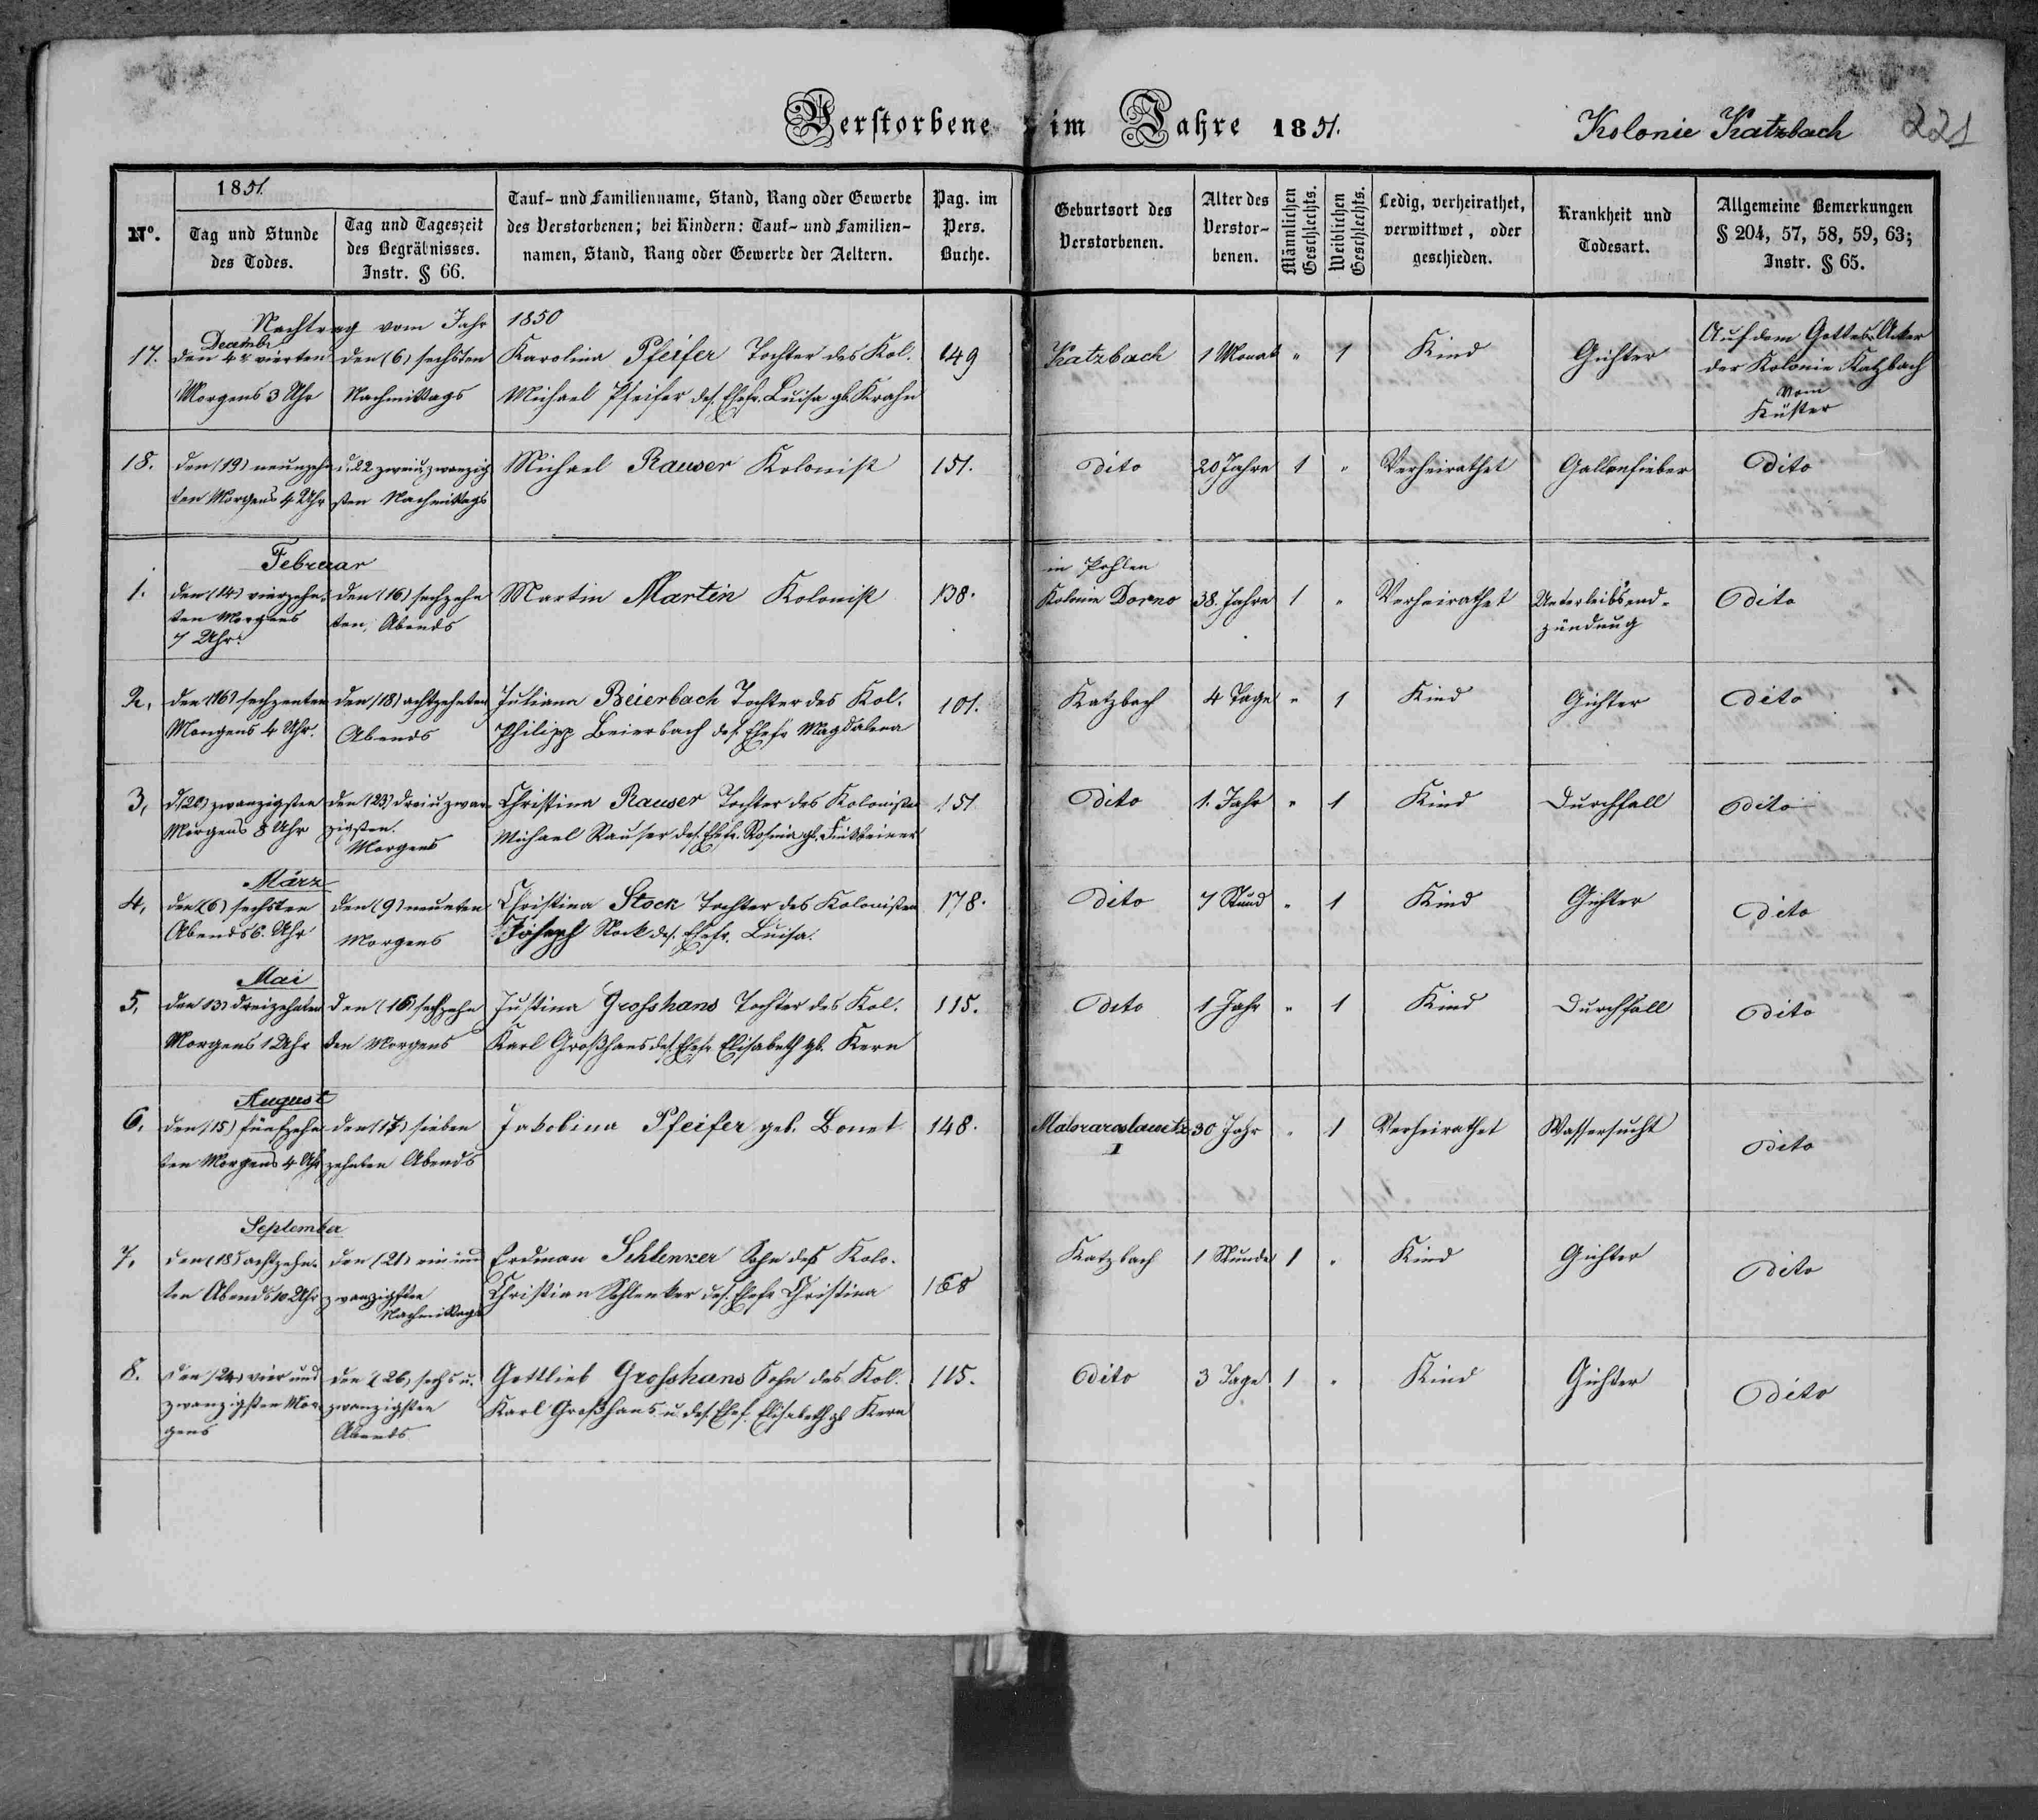 Verstorbene im Jahre 1851. Kolonie Katzbach 221
No.
1851.
Tag und Stunde
des Todes.
Tag und Tageszeit
des Begräbnisses.
Instr. § 66.
Tauf- und Familienname, Stand, Rang oder Gewerbe
des Verstorbenen; bei Kindern: Tauf- und Familien-
namen, Stand, Rang oder Gewerbe der Aeltern.
Pag. im
Pers.
Buche.
Geburtsort des
Verstorbenen.
Alter des
Verstor-
benen.
Männlichen
Geschlechts.
Weiblichen
Geschlechts.
Ledig, verheirathet,
verwittwet, oder
geschieden.
Krankheit und
Todesart.
Allgemeine Bemerkungen
§ 204, 57, 58, 59, 63;
Instr. § 65.
Nachtrag vom Jahr 1850
Decembr
17. den 4ten vierten den (6) sechsten Karolina Pfeifer Tochter des Kol. 149 Katzbach 1 Monat " 1 Kind Gichter Auf dem Gottes Aker
der Kolonie Katzbach
Morgens 3 Uhr Nachmittags Michael Pfeifer des. Ehefr. Luisa gb. Krahn
vom
Küster
18. den (19) neunzehn d. 22 zweiu. zwanzig Michael Rauser Kolonist 151. dito 20 Jahre 1 " Verheirathet Gallenfieber dito
ten Morgens 4 Uhr sten Nachmittags
Februar
in Pohlen
1. den (14) vierzehn- den (16) sechzehn Martin Martin Kolonist 138. Kolonie Dorno 38. Jahre 1 " Verheirathet Unterleibsend- dito
ten Morgens ten, Abends zündung
7 Uhr.
2. den (16) sechzenten den (18) achtzehnten Juliana Beierbach Tochter des Kol. 101. Katzbach 4 Tage " 1 Kind Gichter dito
Morgens 4 Uhr. Abends Philipp Beierbach des. Ehefr Magdalena
3. d. (20) zwanzigsten den (23) dreiu zwan- Christina Rauser Tochter des Kolonisten 151 dito 1. Jahr " 1 Kind Durchfall dito
Morgens 8 Uhr zigsten. Michael Rauser des. Ehefr. Rosina gb. Finkbeiner
Morgens
März
4. den (6) sechsten den (9) neunten Christina Stock Tochter des Kolonisten 178. dito 7 Stund " 1 Kind Gichter dito
Abends 6. Uhr Morgens Joseph Stock des. Ehefr. Luisa.
Mai
5. den 13) dreizehnten den (16) sechzehn Justina Grosshans Tochter des Kol. 115. dito 1 Jahr " 1 Kind Durchfall dito
Morgens 1 Uhr ten Morgens Karl Großhans des. Ehefr Elisabeth gb. Kern
August
6. den (15) fünfzehn den (17) sieben Jakobina Pfeifer geb. Bonet 148. Malorarolawetz 30 Jahr " 1 Verheirathet Wassersucht dito
ten Morgens 4 Uhr zehnten Abends I
September
7. den (18) achtzehn- den (21) ein und Erdman Schlenker Sohn des Kolo. 168 Katzbach 1 Stunde 1 " Kind Gichter dito
ten Abends 10 Uhr zwanzigsten Christian Schlenker des. Ehefr Christina
Nachmittags
8. den (24) vier und den (26) sechs u. Gottlieb Grosshans Sohn des Kol. 115. dito 3 Tage 1 " Kind Gichter dito
zwanzigsten Mor- zwanzigsten Karl Großhans u. des. Ehef. Elisabeth gb Kern
gens Abends